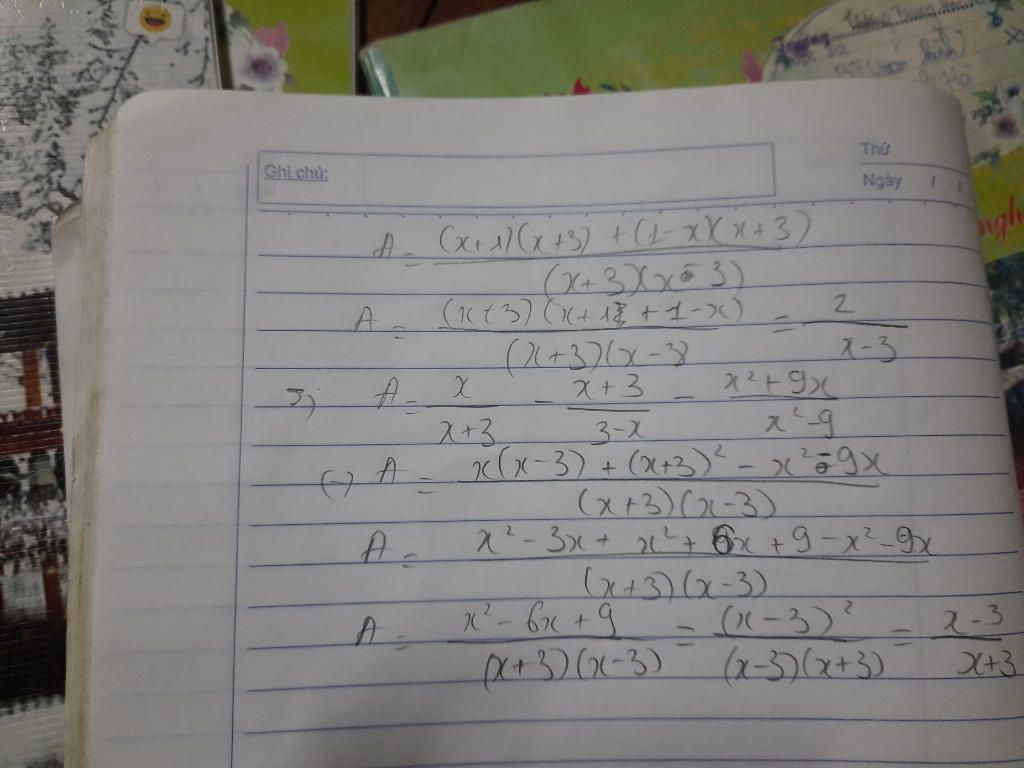 Ghi chú:
Thứ
Ngày / /
A = ((x+1)(x+3) + (1-x)(x+3)) / ((x+3)(x-3))
A = ((x+3)(x+1 + 1-x)) / ((x+3)(x-3)) = 2 / (x-3)
5) A = x / (x+3) - (x+3) / (3-x) - (x²+9x) / (x²-9)
(-) A = (x(x-3) + (x+3)² - x² - 9x) / ((x+3)(x-3))
A = (x² - 3x + x² + 6x + 9 - x² - 9x) / ((x+3)(x-3))
A = (x² - 6x + 9) / ((x+3)(x-3)) = (x-3)² / ((x-3)(x+3)) = (x-3) / (x+3)